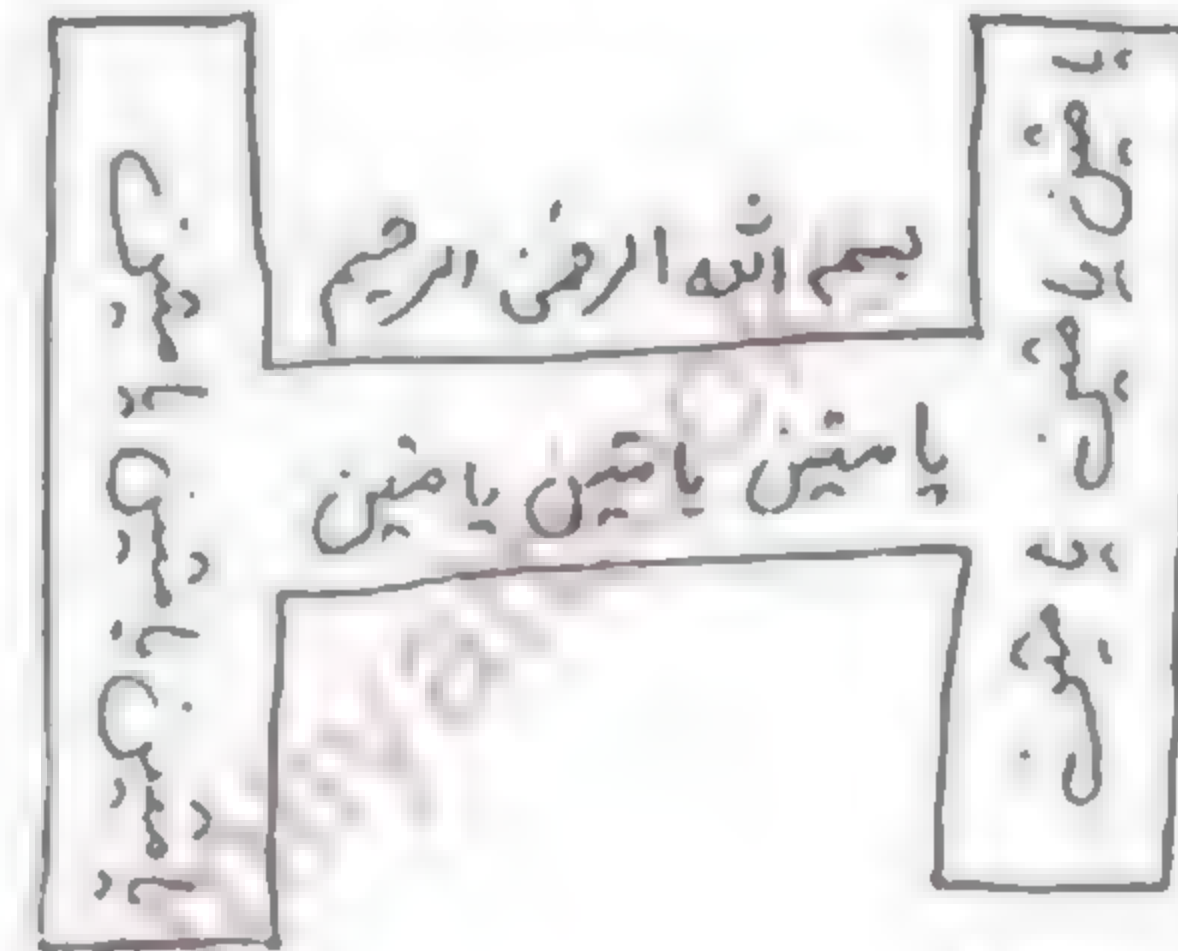 بسم الله الرحمن الرحيم
يا متين يا متين يا متين
يا متين يا متين يا متين
يا متين يا متين يا متين